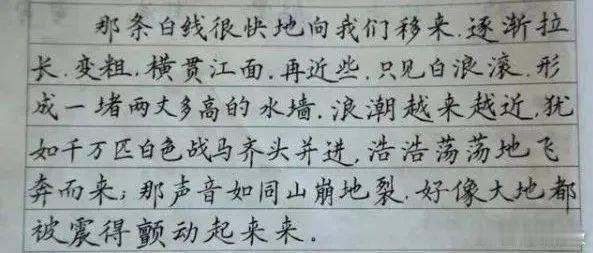 那条白线很快地向我们移来,逐渐拉
长,变粗,横贯江面,再近些,只见白浪滚,形
成一堵两丈多高的水墙,浪潮越来越近,犹
如千万匹白色战马齐头并进,浩浩荡荡地飞
奔而来;那声音如同山崩地裂,好像大地都
被震得颤动起来来。